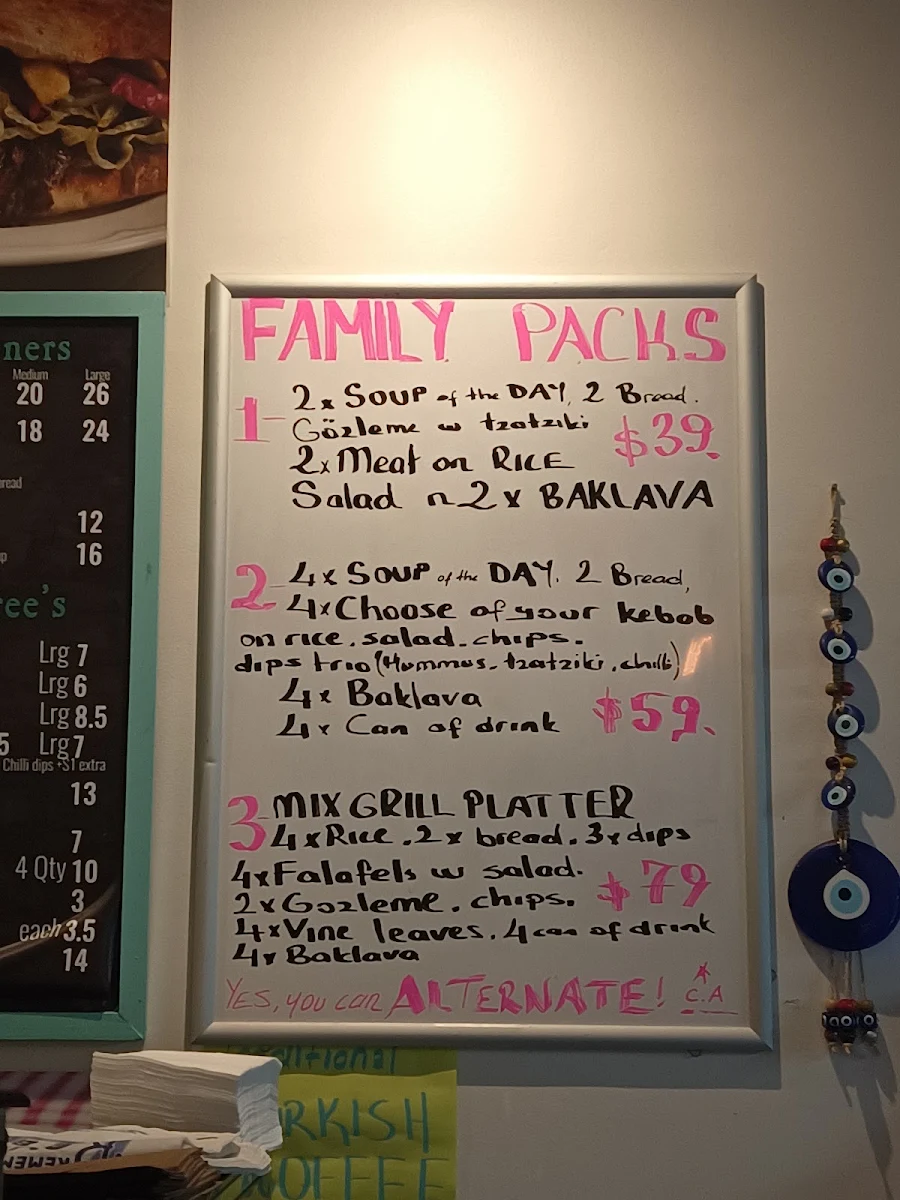 ners
Medium Large
20 26
18 24
12
16
ee's
Lrg 7
Lrg 6
Lrg 8.5
5 Lrg 7
Chilli dips +$1 extra
13
7
4 Qty 10
3
each 3.5
14
FAMILY PACKS
1- 2x SOUP of the DAY, 2 Bread.
Gözleme w tzatziki $39.
2x Meat on RICE
Salad n 2x BAKLAVA
2- 4x SOUP of the DAY. 2 Bread,
4x Choose of your kebob
on rice. salad. chips.
dips trio (Hummus. tzatziki, chilli)
4x Baklava
4x Can of drink $59.
3- MIX GRILL PLATTER
4x Rice. 2x bread. 3x dips
4x Falafels w salad.
2x Gozleme. chips. $79
4x Vine leaves. 4 can of drink
4x Baklava
YES, you can ALTERNATE! C.A
ditional
RKISH
OFFEE